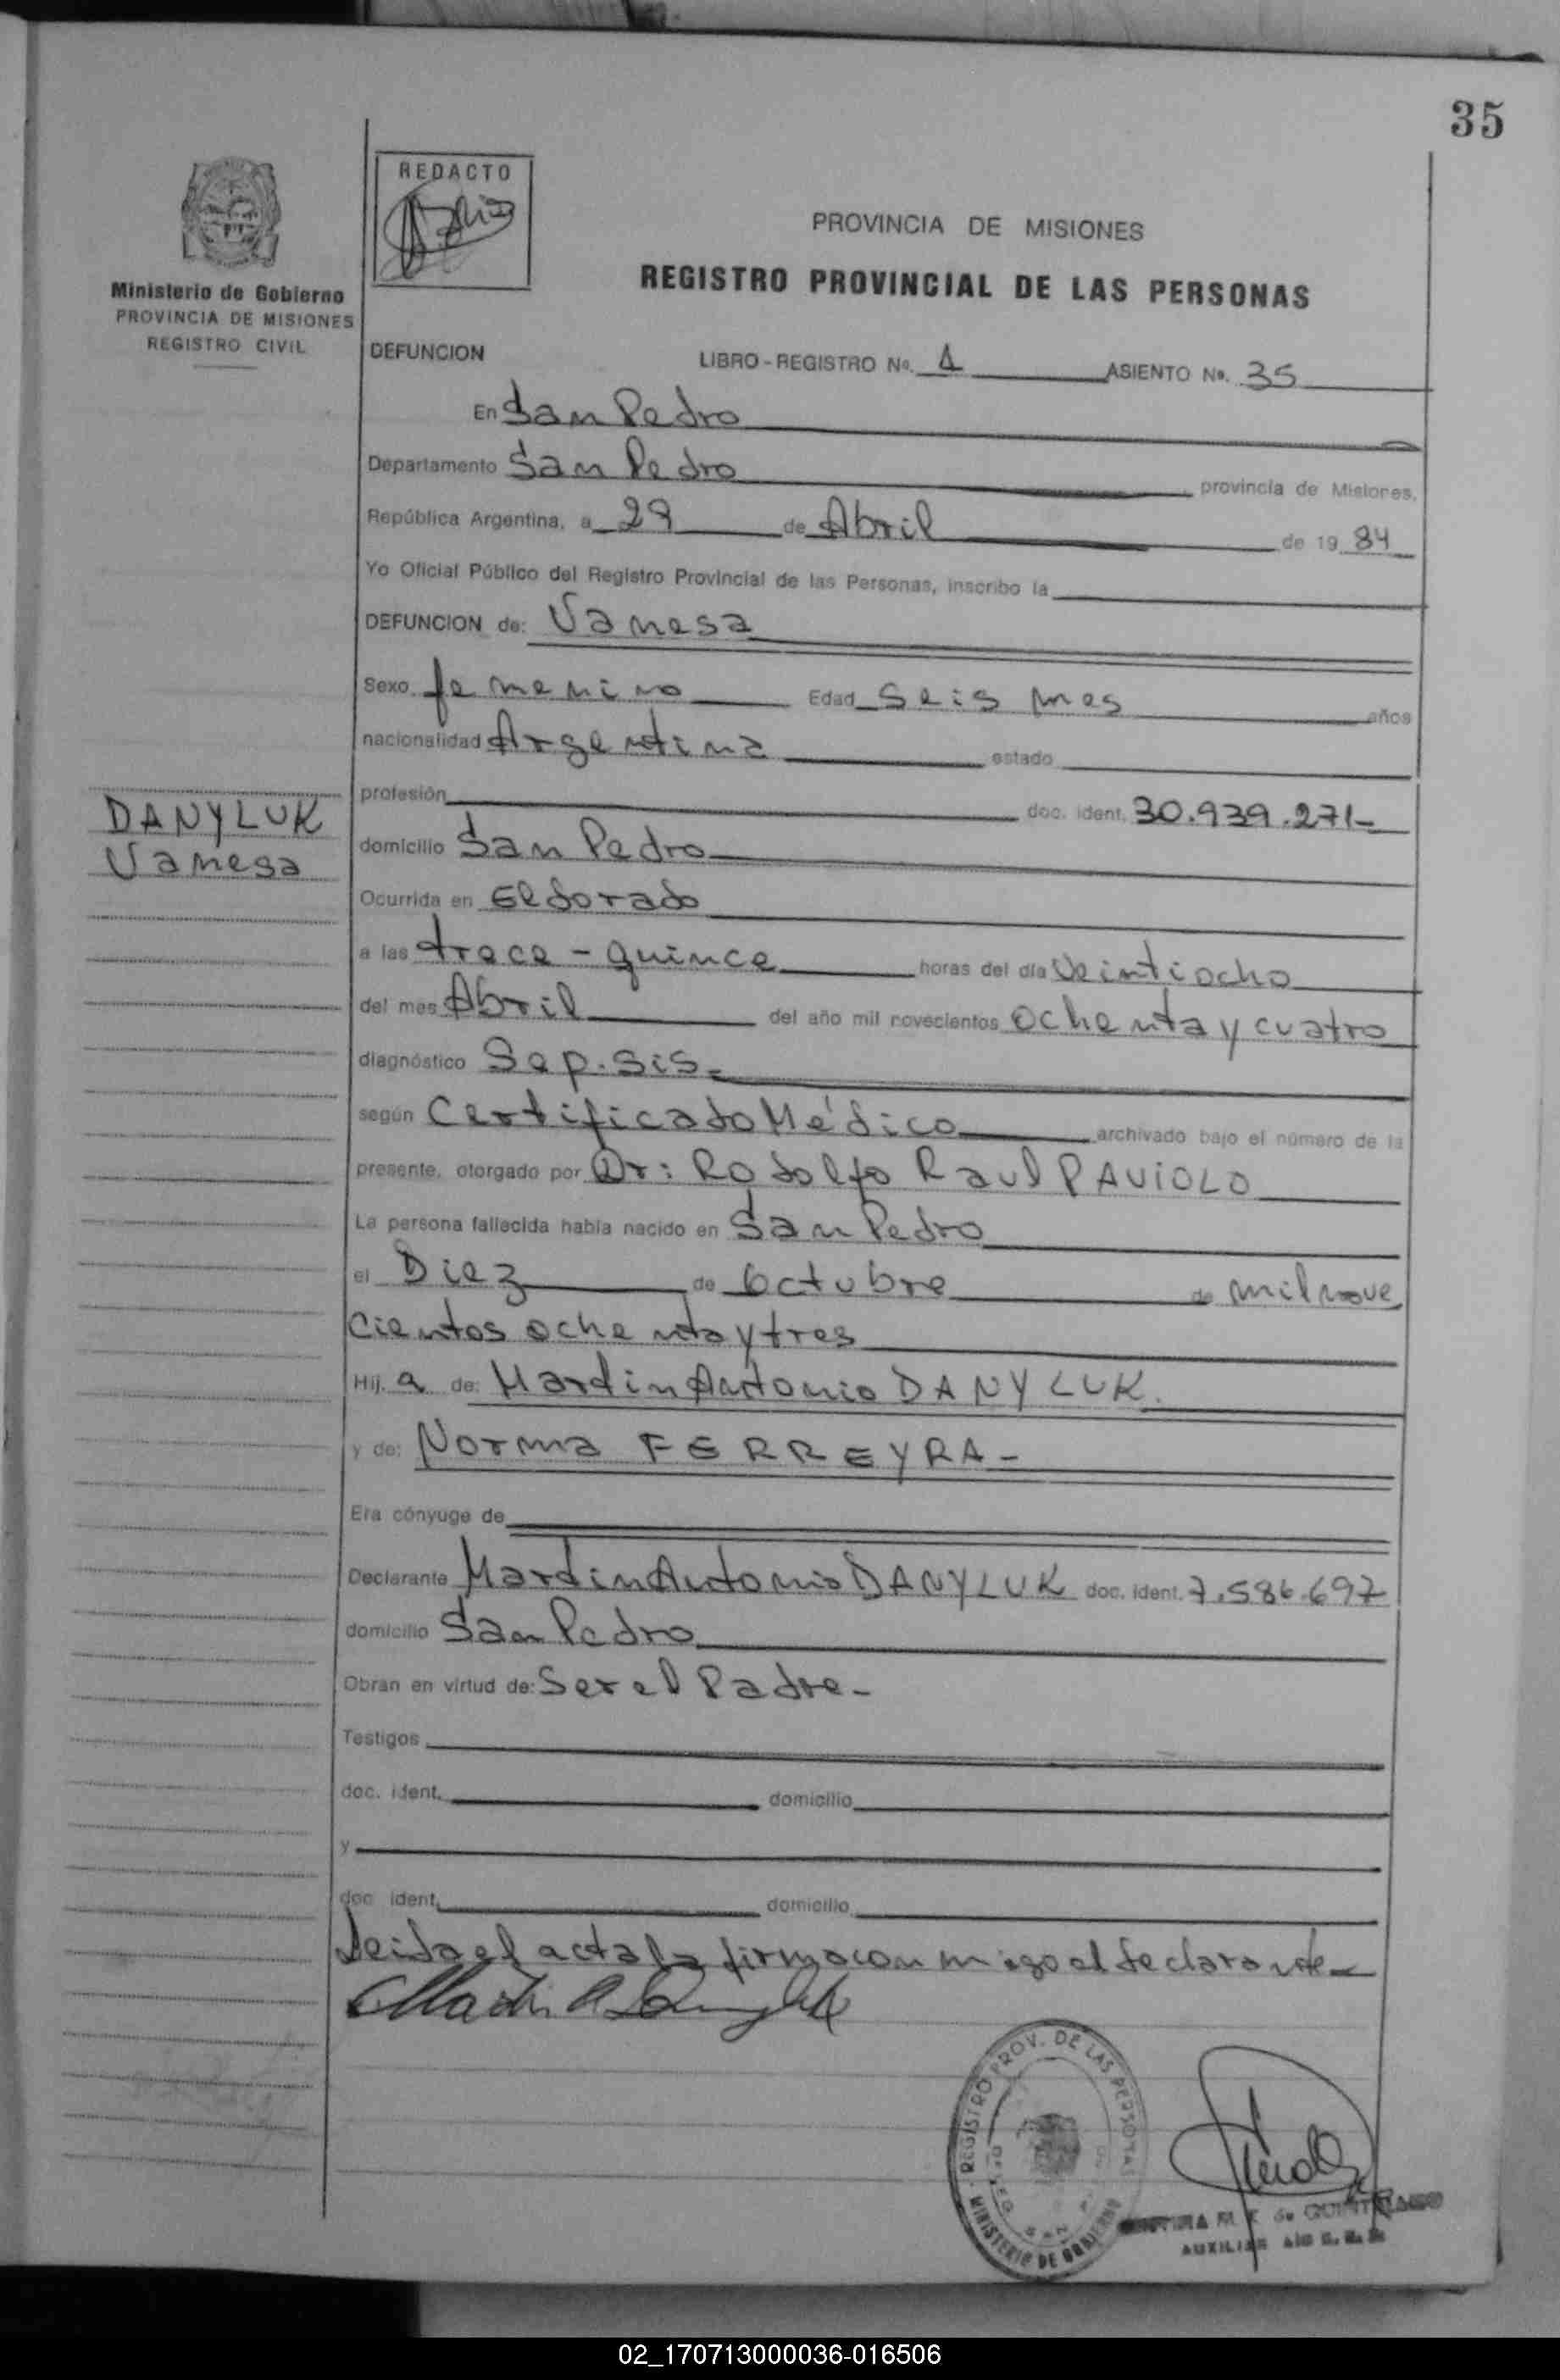 35
REDACTO
Ministerio de Gobierno
PROVINCIA DE MISIONES
REGISTRO CIVIL
PROVINCIA DE MISIONES
REGISTRO PROVINCIAL DE LAS PERSONAS
DEFUNCION LIBRO-REGISTRO No. 1 ASIENTO No. 35
En San Pedro
Departamento San Pedro provincia de Misiones,
República Argentina, a 29 de Abril de 19 84
Yo Oficial Público del Registro Provincial de las Personas, inscribo la
DEFUNCION de: Vanesa
Sexo femenino Edad seis mes años
nacionalidad Argentina estado
profesión doc. ident. 30.939.271-
DANYLUK
Vanesa
domicilio San Pedro
Ocurrida en Eldorado
a las trece - quince horas del día veintiocho
del mes Abril del año mil novecientos ochenta y cuatro
diagnóstico Sep.sis.
según Certificado Médico archivado bajo el número de la
presente, otorgado por Dr: Rodolfo Raul PAVIOLO
La persona fallecida había nacido en San Pedro
el Diez de Octubre de mil nove
cientos ochenta y tres
Hij. a de: Martin Antonio DANYLUK.
y de: Norma FERREYRA -
Era cónyuge de
Declarante Martin Antonio DANYLUK doc. ident. 7.586.697
domicilio San Pedro
Obran en virtud de: Ser el Padre-
Testigos
doc. ident. domicilio
y
doc. ident. domicilio
Leida el acta la firma con migo el declarante-
REGISTRO PROV. DE LAS PERSONAS
MINISTERIO DE GOBIERNO
AUXILIAR
02_170713000036-016506